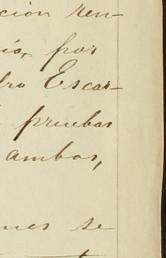 ción ren-
ió, por
dro Escar-
pruebas
ambos,
nes se